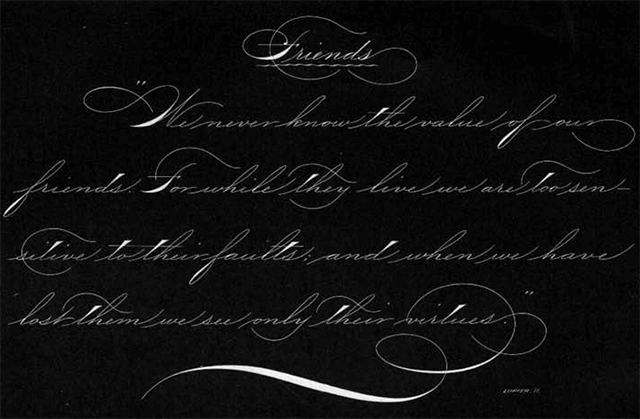 Friends
"We never know the value of our
friends. For while they live we are too sen-
sitive to their faults; and when we have
lost them we see only their virtues."